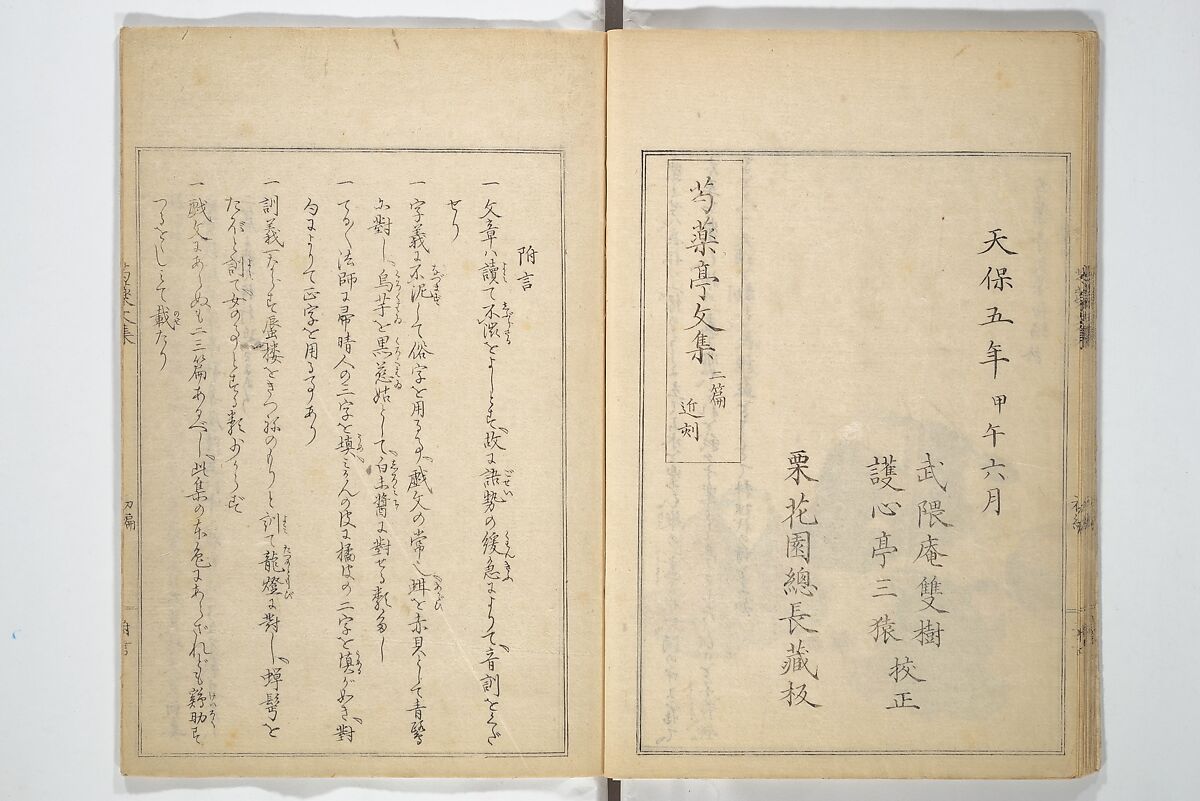 天保五年 甲午六月
武隈庵雙樹
護心亭三猿 挍正
栗花園總長藏板
芍藥亭文集 二篇 近刻
附言
一文章ハ讀て不澁をよしとす、故に語勢の緩急によりて、音訓をくだ
せり
一字義に不泥して俗字を用るは、戯文の常也、蚶を赤貝として青鷺
に對し、烏芋を黒慈姑として、白未醬に對せる類多し
一てる〳〵法師に帚晴人の三字を填、みかんの皮に橘皮の二字を填がごとき、對
句によりて正字を用る事あり
一訓義一ならす蜃楼をきつねのもりと訓て龍燈に對し、蝉鬂を
と訓て女の類少からず
一戯文にあらぬも二三篇あるべし、此集の本色にあらざれども鷄肋
つるをしとて載たり
初篇
附言